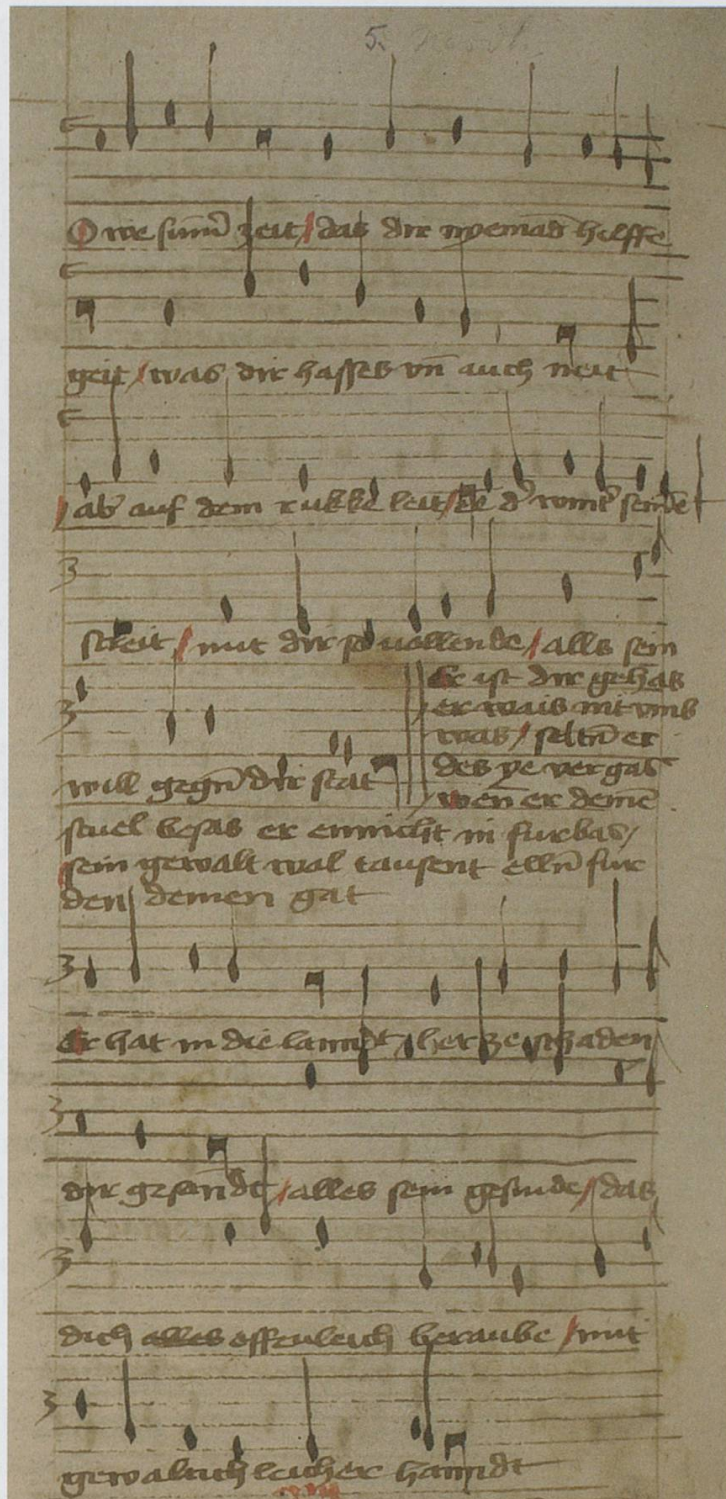 5.
O we sum̄ zeit / das dir nyemād helffe
geit / was dir hasses vn̄ auch neit
/ ab auf dem rukke leit / der wint sein
streit / mit dir so vollende / alls sein
will gegn̄ dir stat
Er ist dir gehas
er wais nit vmb
was / seltn̄ er
des ye vergas
wen̄ er deine
stuel besas er ennicht in furbas /
sein gewalt wal tausent elln̄ fur
den deinen gat
Er hat in die lanndt / her ze schaden
dir gesanndt / alles sein gesinde / das
dich alles offenleich beraube / mit
gewaltichleicher hanndt